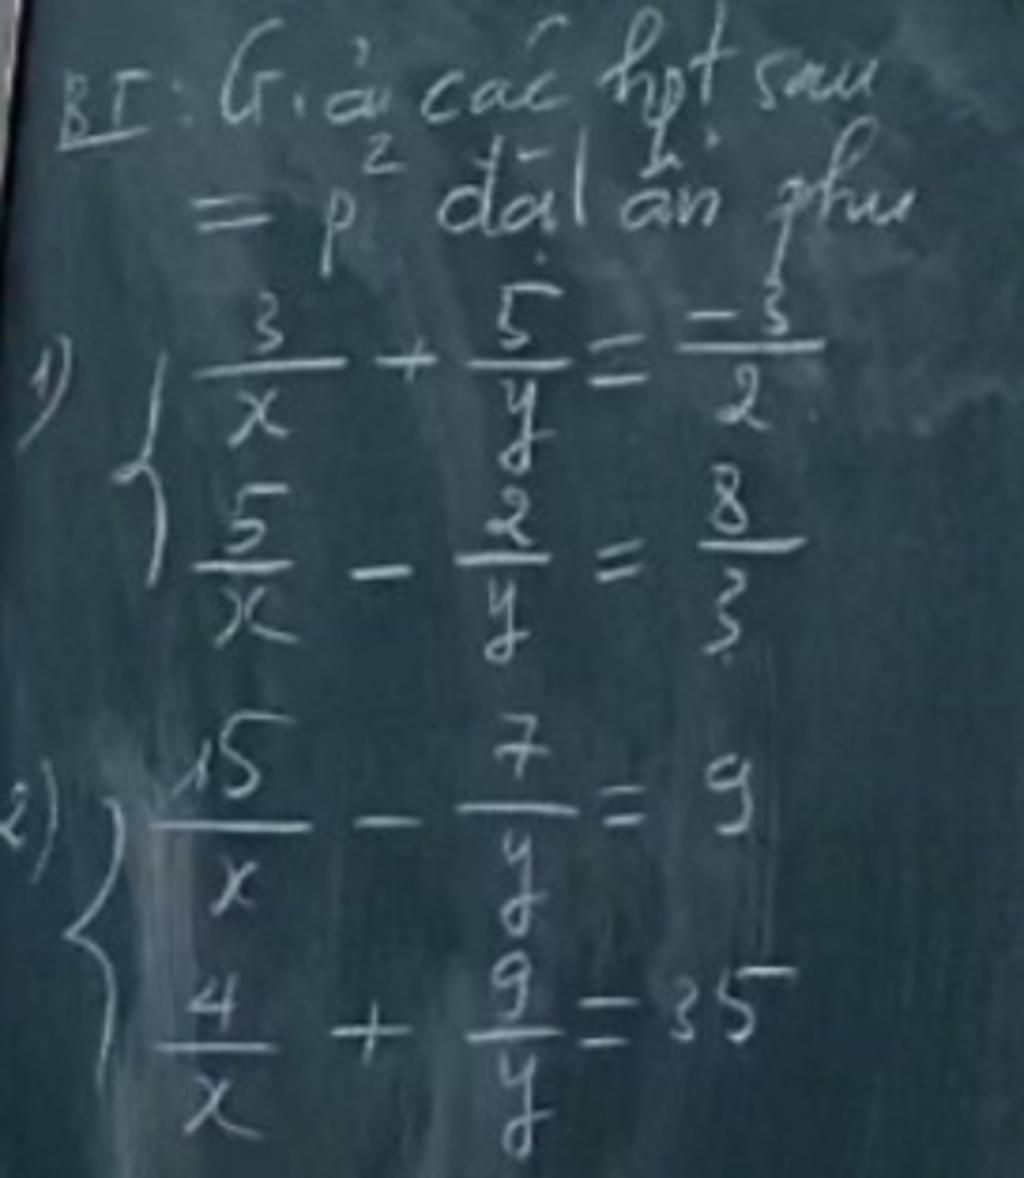 BT: Giải các hpt sau
= p² đặt ẩn phụ
1) { 3/x + 5/y = -3/2
5/x - 2/y = 8/3
2) { 15/x - 7/y = 9
4/x + 9/y = 35